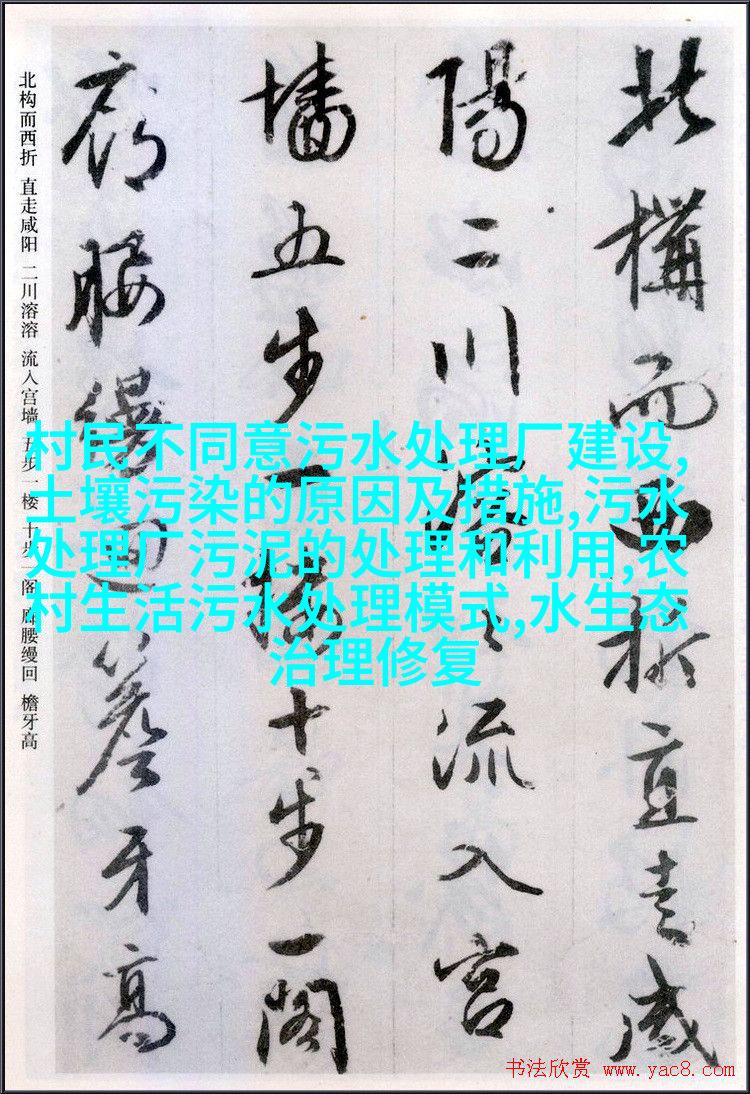 北構而西折直走咸
陽二川溶溶流入宮
墻五步一樓十步一閣
廊腰縵迴簷牙高
北构而西折 直走咸阳 二川溶溶 流入宫墙 五步一楼 十步一阁 廊腰缦回 檐牙高
村民不同意污水处理厂建设,
土壤污染的原因及措施,污水
处理厂污泥的处理和利用,农
村生活污水处理模式,水生态
治理修复
书法欣赏 www.yac8.com